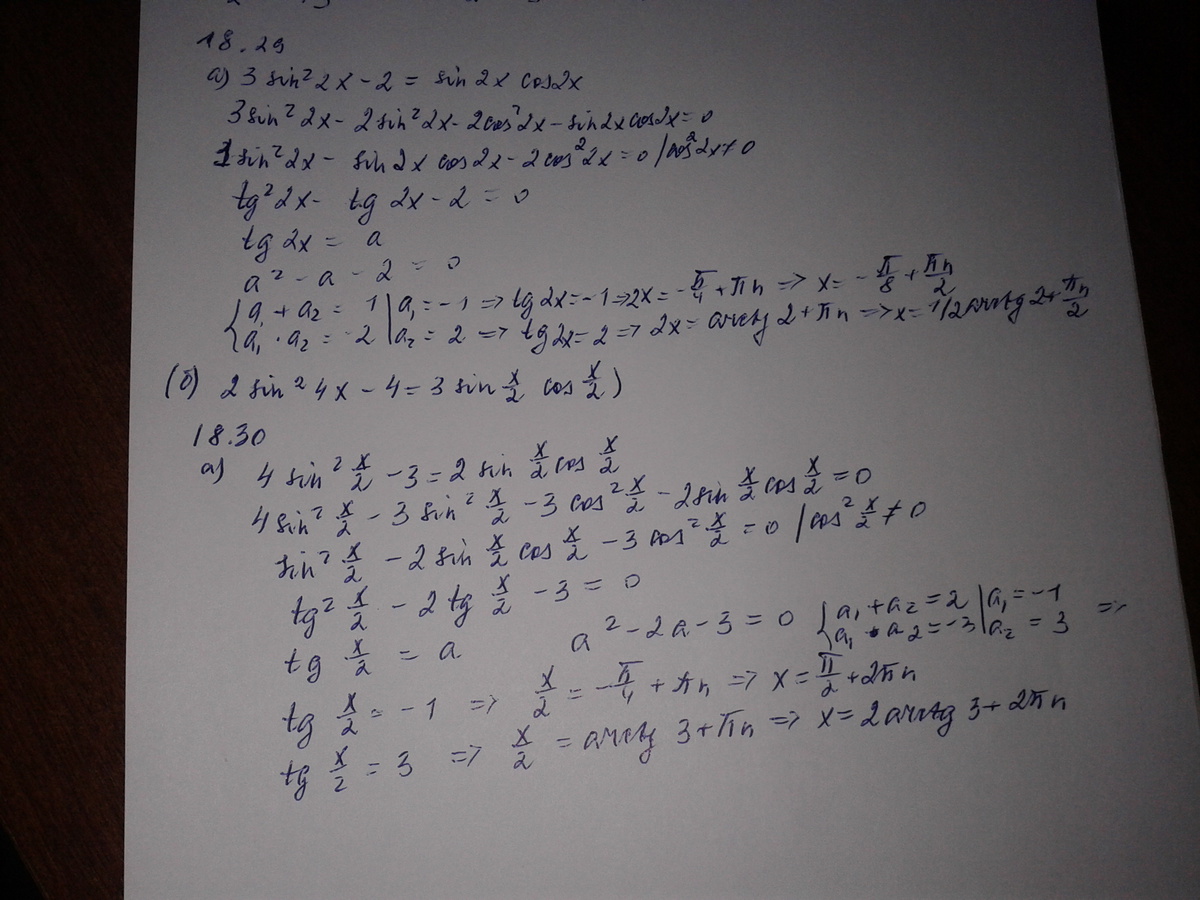 18.29
а) 3 sin² 2x - 2 = sin 2x cos2x
3sin² 2x - 2 sin² 2x - 2cos² 2x - sin2x cos2x = 0
1 sin² 2x - sin 2x cos 2x - 2 cos² 2x = 0 / cos² 2x ≠ 0
tg² 2x - tg 2x - 2 = 0
tg 2x = a
a² - a - 2 = 0
{ a₁ + a₂ = 1 | a₁ = -1 => tg 2x = -1 => 2x = -π/4 + πn => x = -π/8 + πn/2
a₁ · a₂ = -2 | a₂ = 2 => tg 2x = 2 => 2x = arctg 2 + πn => x = 1/2 arctg 2 + πn/2
(б) 2 sin² 4x - 4 = 3 sin x/2 cos x/2)
18.30
а) 4 sin² x/2 - 3 = 2 sin x/2 cos x/2
4 sin² x/2 - 3 sin² x/2 - 3 cos² x/2 - 2sin x/2 cos x/2 = 0
sin² x/2 - 2 sin x/2 cos x/2 - 3 cos² x/2 = 0 / cos² x/2 ≠ 0
tg² x/2 - 2 tg x/2 - 3 = 0
tg x/2 = a a² - 2a - 3 = 0 { a₁ + a₂ = 2 | a₁ = -1 =>
a₁ · a₂ = -3 | a₂ = 3
tg x/2 = -1 => x/2 = -π/4 + πn => x = π/2 + 2πn
tg x/2 = 3 => x/2 = arctg 3 + πn => x = 2 arctg 3 + 2πn